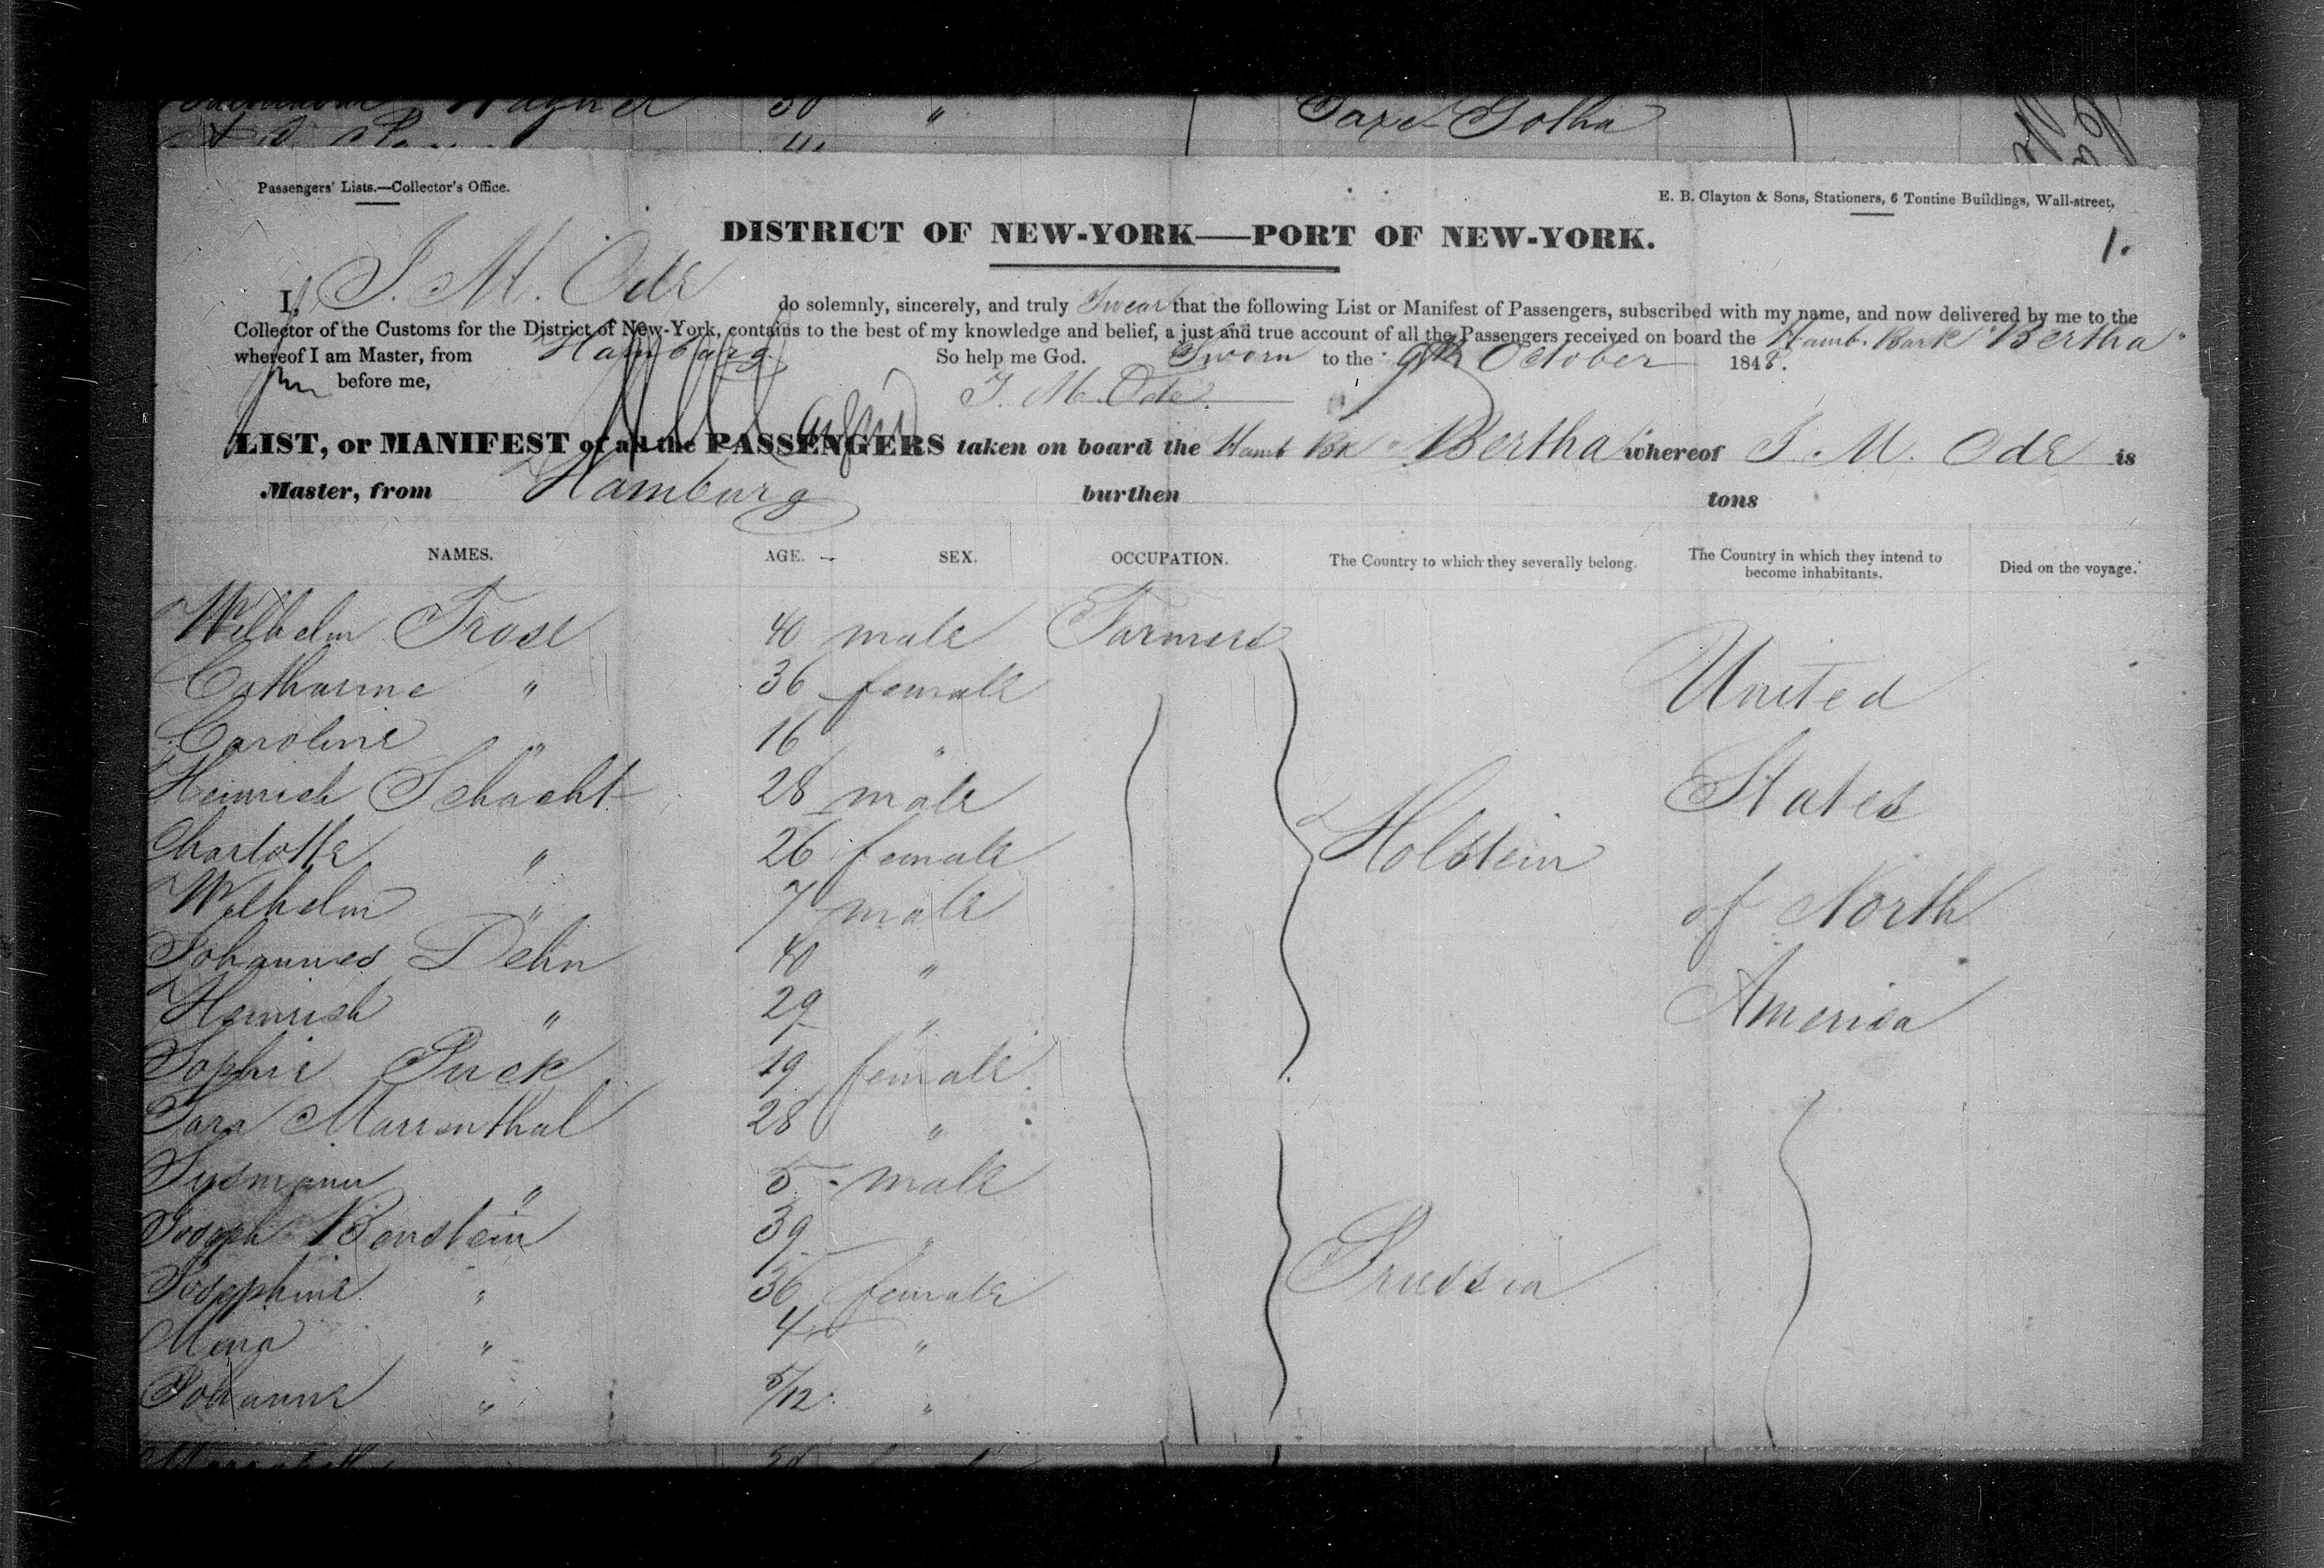 Wagner 30 " Saxe-Gotha
Passengers' Lists.—Collector's Office.
E. B. Clayton & Sons, Stationers, 6 Tontine Buildings, Wall-street,
DISTRICT OF NEW-YORK——PORT OF NEW-YORK.
1.
I, J. M. Ode do solemnly, sincerely, and truly Swear that the following List or Manifest of Passengers, subscribed with my name, and now delivered by me to the
Collector of the Customs for the District of New-York, contains to the best of my knowledge and belief, a just and true account of all the Passengers received on board the Hamb. Bark "Bertha"
whereof I am Master, from Hamburg So help me God. Sworn to the 9th October 1848.
before me, J. M. Ode.
LIST, or MANIFEST of all the PASSENGERS taken on board the Hamb Bk "Bertha" whereof J. M. Ode is
Master, from Hamburg burthen tons
NAMES. AGE. SEX. OCCUPATION. The Country to which they severally belong. The Country in which they intend to become inhabitants. Died on the voyage.
Wilhelm Trose 40 male Farmers
Catharine " 36 female United
Caroline " 16 "
Heinrich Schacht 28 male States
Charlotte " 26 female Holstein
Wilhelm " 7 male of North
Johannes Dehn 40 "
Heinrich " 29 " America
Sophie Puck 19 female
Sara Marrenthal 28 "
Susmann " 5 male
Joseph Bernstein 39 "
Josephine " 36 female Prussia
Mena " 4 "
Johanne " 5/12 "